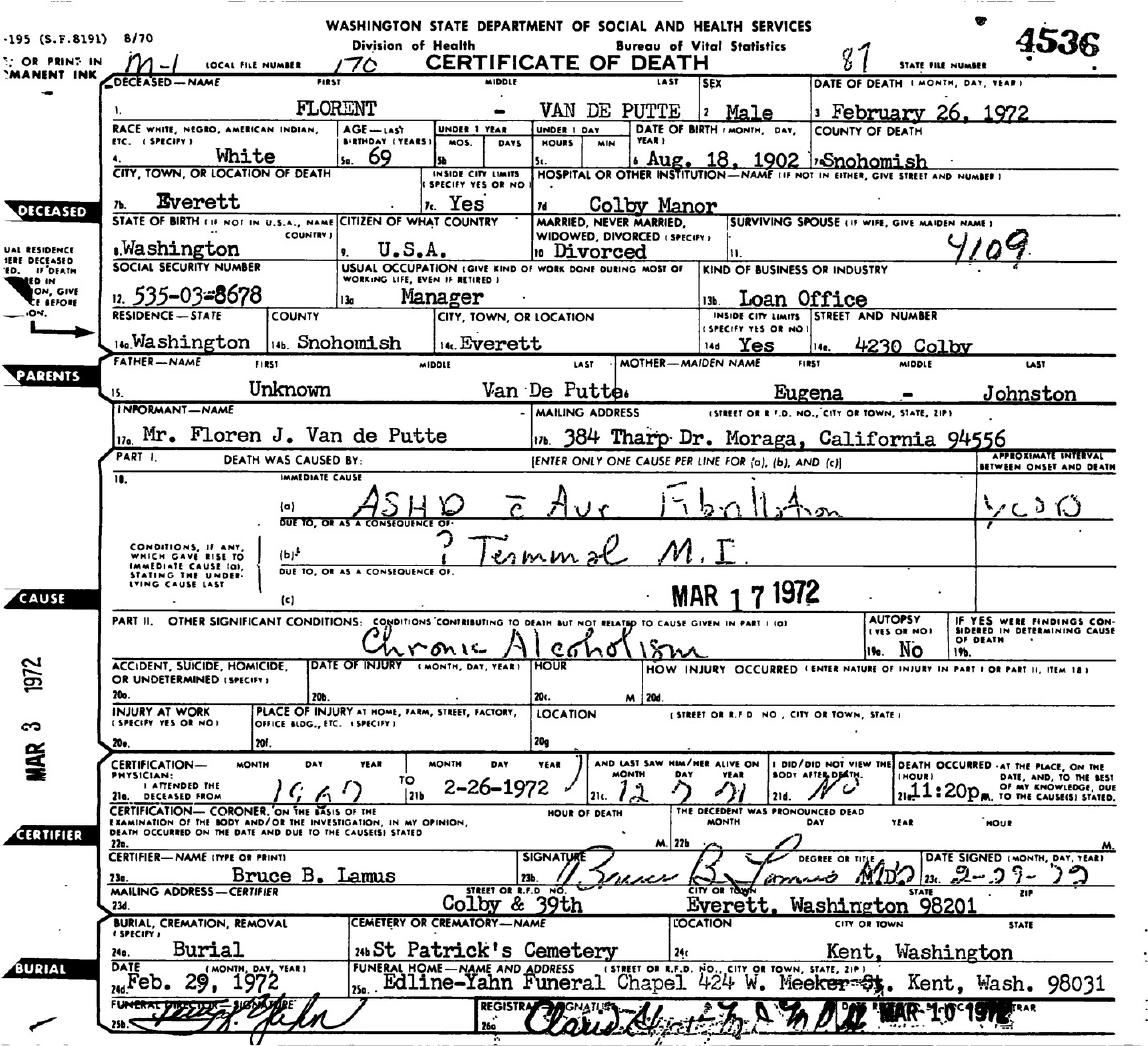 WASHINGTON STATE DEPARTMENT OF SOCIAL AND HEALTH SERVICES
-195 (S.F.8191) 8/70
Division of Health Bureau of Vital Statistics
4536
OR PRINT IN
MANENT INK
M-1 LOCAL FILE NUMBER 170 CERTIFICATE OF DEATH 87 STATE FILE NUMBER
DECEASED—NAME FIRST MIDDLE LAST SEX DATE OF DEATH (MONTH, DAY, YEAR)
1. FLORENT - VAN DE PUTTE 2 Male 3 February 26, 1972
RACE WHITE, NEGRO, AMERICAN INDIAN, ETC. (SPECIFY) AGE—LAST BIRTHDAY (YEARS) UNDER 1 YEAR UNDER 1 DAY DATE OF BIRTH (MONTH, DAY, YEAR) COUNTY OF DEATH
MOS. DAYS HOURS MIN
4. White 5a. 69 5b 5c. 6 Aug. 18, 1902 7a Snohomish
CITY, TOWN, OR LOCATION OF DEATH INSIDE CITY LIMITS (SPECIFY YES OR NO) HOSPITAL OR OTHER INSTITUTION—NAME (IF NOT IN EITHER, GIVE STREET AND NUMBER)
7b. Everett 7c. Yes 7d Colby Manor
DECEASED
STATE OF BIRTH (IF NOT IN U.S.A., NAME COUNTRY) CITIZEN OF WHAT COUNTRY MARRIED, NEVER MARRIED, WIDOWED, DIVORCED (SPECIFY) SURVIVING SPOUSE (IF WIFE, GIVE MAIDEN NAME)
8. Washington 9. U.S.A. 10 Divorced 11. 4109
UAL RESIDENCE
ERE DECEASED
ED. IF DEATH
ED IN
ON, GIVE
CE BEFORE
ON.
SOCIAL SECURITY NUMBER USUAL OCCUPATION (GIVE KIND OF WORK DONE DURING MOST OF WORKING LIFE, EVEN IF RETIRED) KIND OF BUSINESS OR INDUSTRY
12. 535-03-8678 13a Manager 13b. Loan Office
RESIDENCE—STATE COUNTY CITY, TOWN, OR LOCATION INSIDE CITY LIMITS (SPECIFY YES OR NO) STREET AND NUMBER
14a. Washington 14b. Snohomish 14c. Everett 14d Yes 14e. 4230 Colby
PARENTS
FATHER—NAME FIRST MIDDLE LAST MOTHER—MAIDEN NAME FIRST MIDDLE LAST
15. Unknown Van De Putte Eugena - Johnston
INFORMANT—NAME MAILING ADDRESS (STREET OR R.F.D. NO., CITY OR TOWN, STATE, ZIP)
17a. Mr. Floren J. Van de Putte 17b. 384 Tharp Dr. Moraga, California 94556
PART I. DEATH WAS CAUSED BY: [ENTER ONLY ONE CAUSE PER LINE FOR (a), (b), AND (c)] APPROXIMATE INTERVAL BETWEEN ONSET AND DEATH
18. IMMEDIATE CAUSE
(a) ASHD c̄ Aur Fibrillation
DUE TO, OR AS A CONSEQUENCE OF:
CONDITIONS, IF ANY, WHICH GAVE RISE TO IMMEDIATE CAUSE (a), STATING THE UNDERLYING CAUSE LAST
(b) ? Terminal M.I.
DUE TO, OR AS A CONSEQUENCE OF:
(c) MAR 17 1972
CAUSE
PART II. OTHER SIGNIFICANT CONDITIONS: CONDITIONS CONTRIBUTING TO DEATH BUT NOT RELATED TO CAUSE GIVEN IN PART I (a) AUTOPSY (YES OR NO) IF YES WERE FINDINGS CONSIDERED IN DETERMINING CAUSE OF DEATH
Chronic Alcoholism 19a. No 19b.
ACCIDENT, SUICIDE, HOMICIDE, OR UNDETERMINED (SPECIFY) DATE OF INJURY (MONTH, DAY, YEAR) HOUR HOW INJURY OCCURRED (ENTER NATURE OF INJURY IN PART I OR PART II, ITEM 18)
20a. 20b. 20c. M 20d.
INJURY AT WORK (SPECIFY YES OR NO) PLACE OF INJURY AT HOME, FARM, STREET, FACTORY, OFFICE BLDG., ETC. (SPECIFY) LOCATION (STREET OR R.F.D NO, CITY OR TOWN, STATE)
20e. 20f. 20g
MAR 3 1972
CERTIFICATION—PHYSICIAN: MONTH DAY YEAR MONTH DAY YEAR AND LAST SAW HIM/HER ALIVE ON MONTH DAY YEAR I DID/DID NOT VIEW THE BODY AFTER DEATH. DEATH OCCURRED (HOUR) AT THE PLACE, ON THE DATE, AND, TO THE BEST OF MY KNOWLEDGE, DUE TO THE CAUSE(S) STATED.
21a. I ATTENDED THE DECEASED FROM 1967 TO 21b 2-26-1972 21c. 12 7 71 21d. No 21e 11:20p M.
CERTIFIER
CERTIFICATION—CORONER. ON THE BASIS OF THE EXAMINATION OF THE BODY AND/OR THE INVESTIGATION, IN MY OPINION, DEATH OCCURRED ON THE DATE AND DUE TO THE CAUSE(S) STATED HOUR OF DEATH THE DECEDENT WAS PRONOUNCED DEAD MONTH DAY YEAR HOUR
22a. M. 22b M.
CERTIFIER—NAME (TYPE OR PRINT) SIGNATURE DEGREE OR TITLE DATE SIGNED (MONTH, DAY, YEAR)
23a. Bruce B. Lamus 23b. Bruce B. Lamus MD 23c. 2-29-72
MAILING ADDRESS—CERTIFIER STREET OR R.F.D NO. CITY OR TOWN STATE ZIP
23d. Colby & 39th Everett, Washington 98201
BURIAL, CREMATION, REMOVAL (SPECIFY) CEMETERY OR CREMATORY—NAME LOCATION CITY OR TOWN STATE
24a. Burial 24b St Patrick's Cemetery 24c Kent, Washington
BURIAL
DATE (MONTH, DAY, YEAR) FUNERAL HOME—NAME AND ADDRESS (STREET OR R.F.D. NO., CITY OR TOWN, STATE, ZIP)
24d. Feb. 29, 1972 25a. Edline-Yahn Funeral Chapel 424 W. Meeker St. Kent, Wash. 98031
FUNERAL DIRECTOR—SIGNATURE REGISTRAR SIGNATURE
25b. Yahn 26a MAR 10 1972